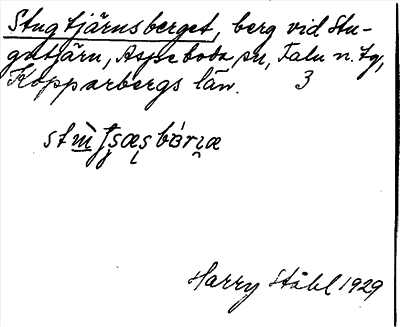 Stugtjärnsberget, berg vid Stu-
gutjärn, Aspeboda sn, Falu n. tg,
Kopparbergs län. 3
Harry Ståhl 1929